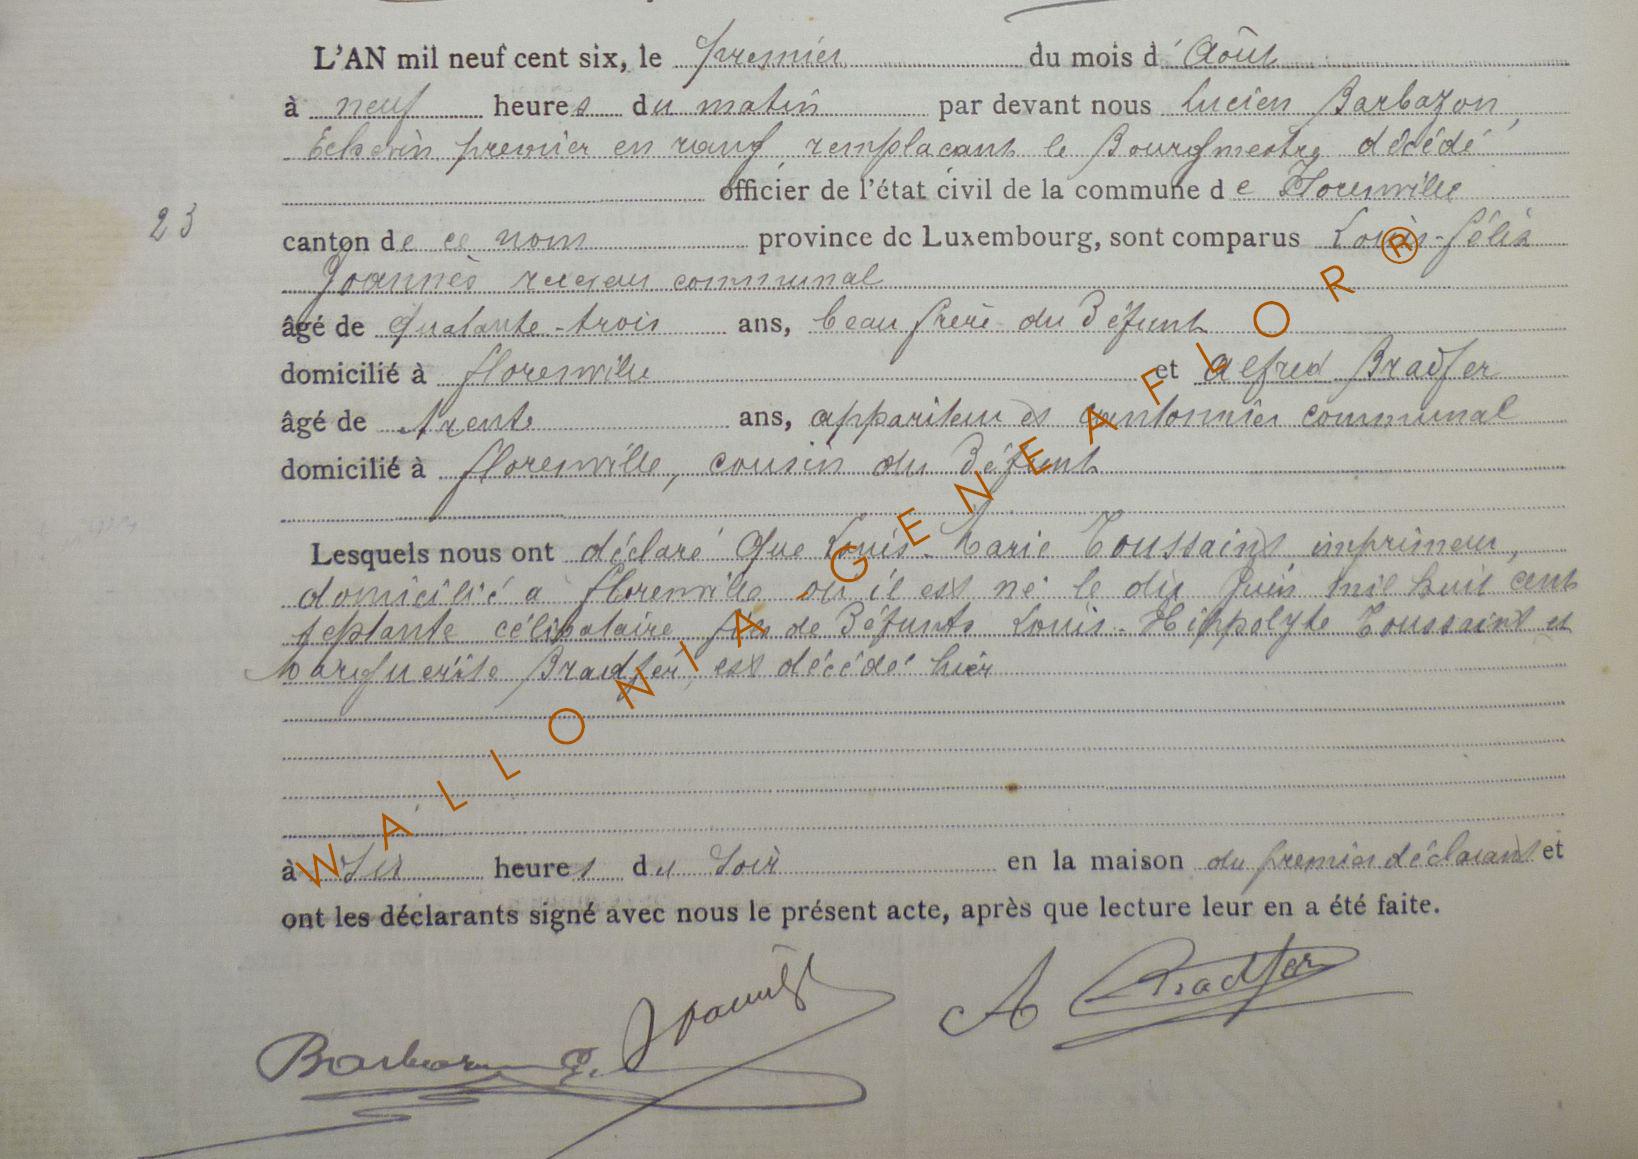 L'AN mil neuf cent six, le premier du mois d'Août
à neuf heures du matin par devant nous Lucien Barbazon,
Echevin premier en rang, remplaçant le Bourgmestre décédé
officier de l'état civil de la commune de Florenville
23
canton de ce nom province de Luxembourg, sont comparus Louis-Félix
Joannès receveur communal
âgé de quatante-trois ans, beau frère du Défunt
domicilié à florenville et Alfred Bradfer
âgé de trente ans, appariteur et cantonnier communal
domicilié à florenville, cousin du Défunt
Lesquels nous ont déclaré que Louis-Marie Toussaint imprimeur,
domicilié à florenville où il est né le dix Juin mil huit cent
septante célibataire, fils de Défunts Louis-Hippolyte Toussaint et
Marguerite Bradfer, est décédé hier
à six heures du soir en la maison du premier déclarant et
ont les déclarants signé avec nous le présent acte, après que lecture leur en a été faite.
Joannès
A Bradfer
Barbazon
WALLONIA GENEAFLOR ®